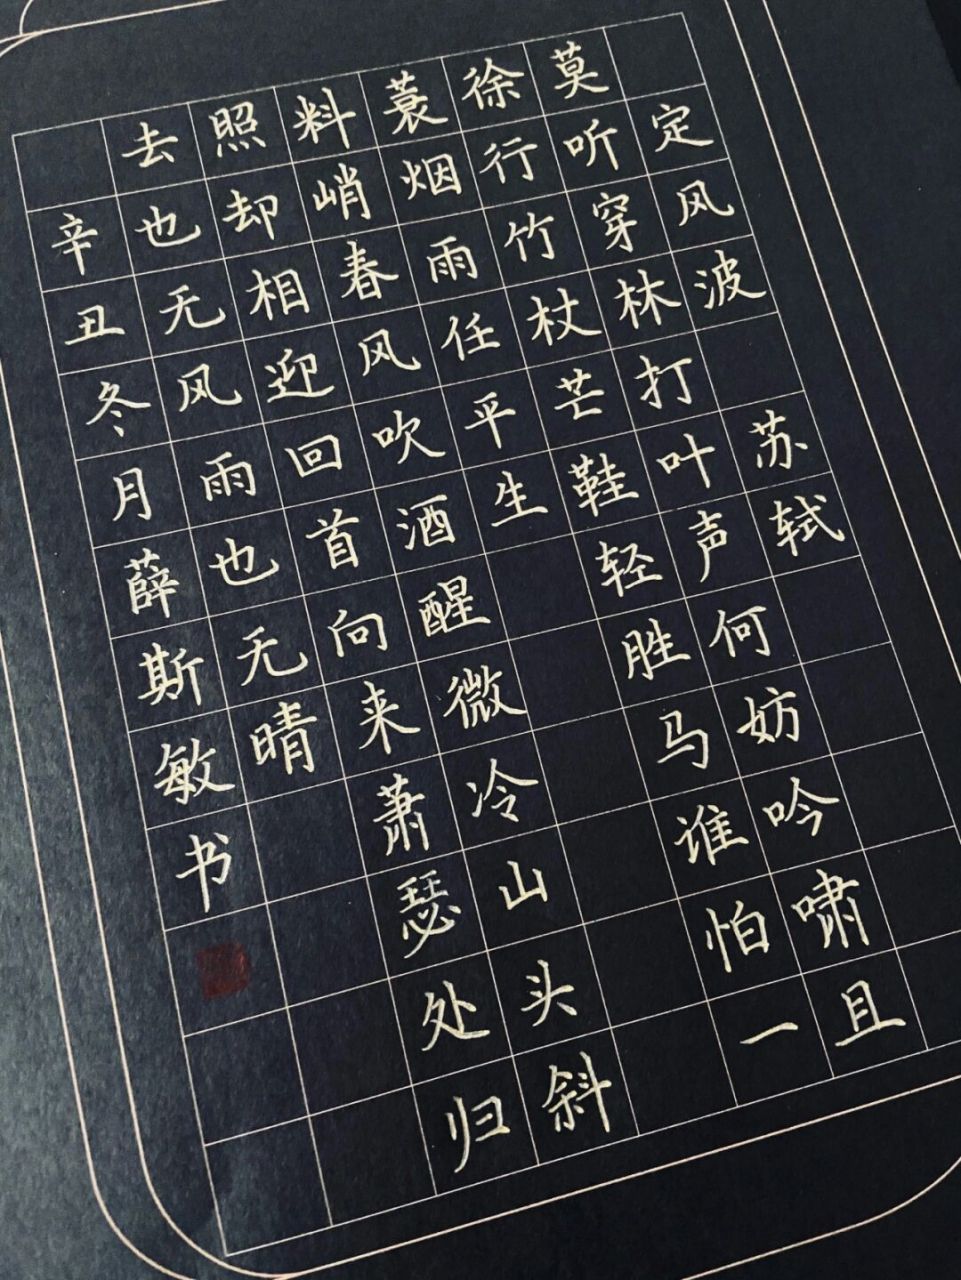 定风波 苏轼
莫听穿林打叶声何妨吟啸且
徐行竹杖芒鞋轻胜马谁怕一
蓑烟雨任平生
料峭春风吹酒醒微冷山头斜
照却相迎回首向来萧瑟处归
去也无风雨也无晴
辛丑冬月薛斯敏书